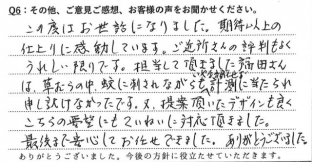 Q6：その他、ご意見ご感想、お客様の声をお聞かせください。
この度はお世話になりました。期待以上の
仕上りに感動しています。ご近所さんの評判もよく
うれしい限りです。担当して頂きました福田さん
は、草だらけの中、蚊に刺されながら計測に当られ
申し訳けなかったです。又、提案頂いたデザインも良く
こちらの要望にもていねいに対応頂きました。
最後まで安心してお任せできました。ありがとうございました。
ありがとうございました。今後の方針に役立たせていただきます。